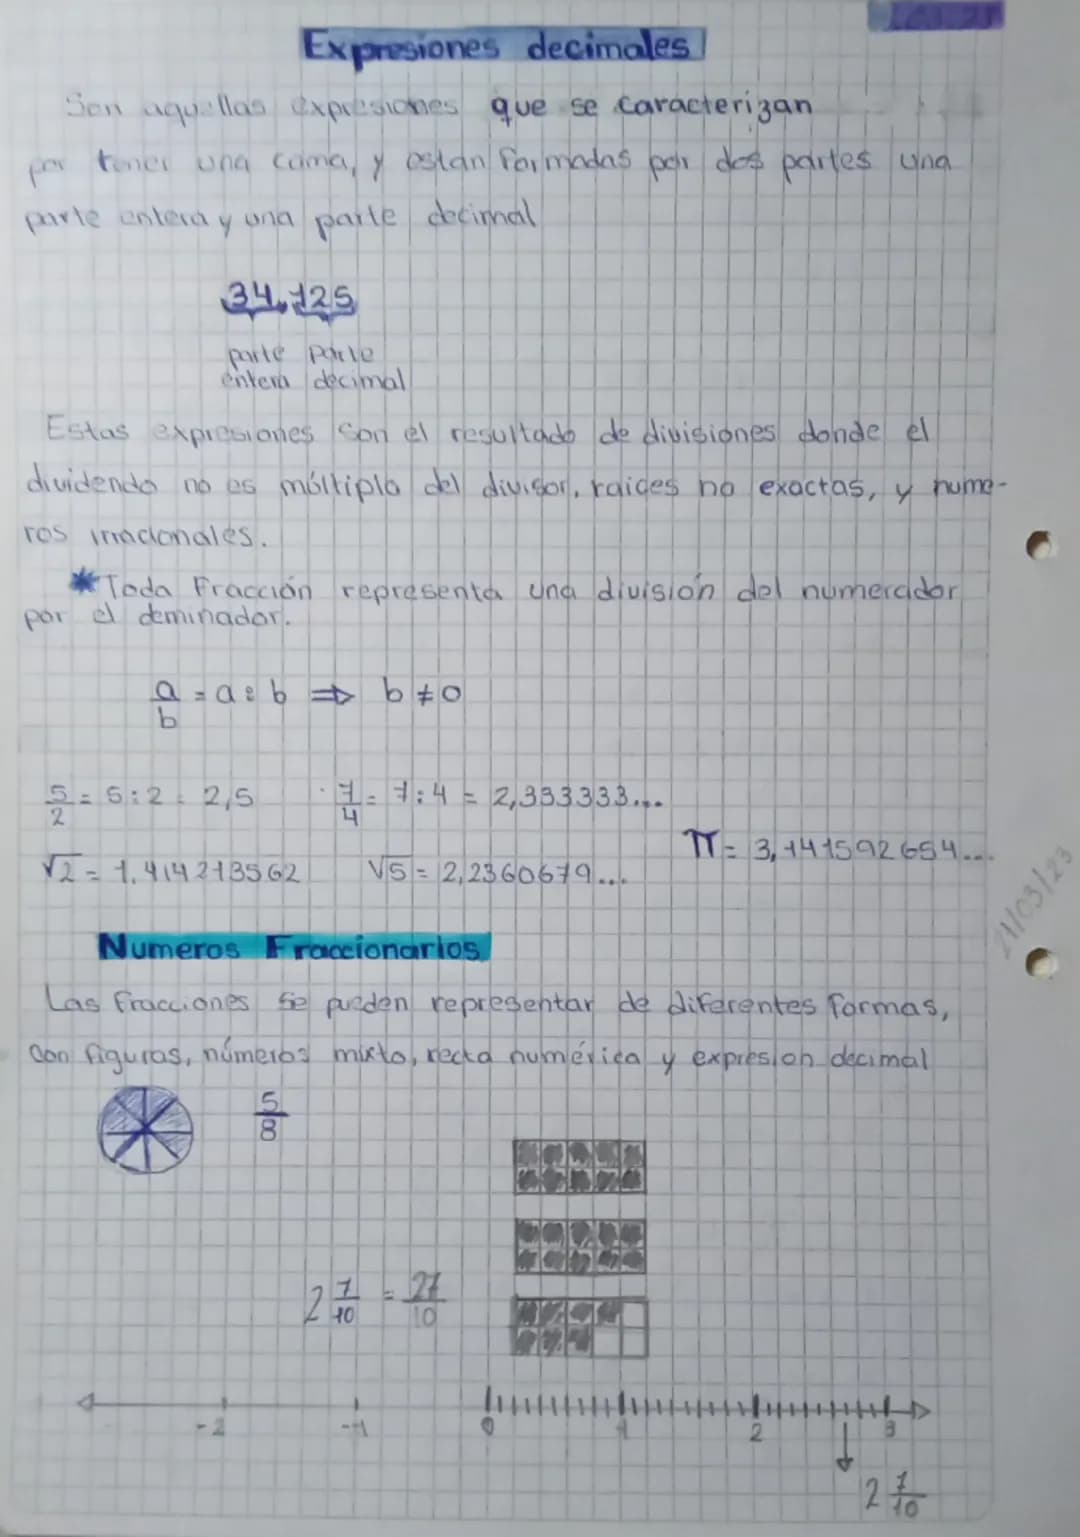 Expresiones decimales
Son aquellas expresiones que se caracterizan
por tener una coma, y estan formadas por dos partes una
parte entera y una parte decimal
34,125
parte parte
entera decimal
Estas expresiones son el resultado de divisiones donde el
dividendo no es múltiplo del divisor, raices no exactas, y nume-
ros irracionales.
*Toda Fracción representa una división del numerador
por el deminador.
a/b = a : b ⇒ b ≠ 0
5/2 = 5:2 = 2,5 · 7/4 = 7:4 = 2,333333...
π = 3,141592654...
√2 = 1,414213562 √5 = 2,2360679...
21/03/23
Numeros Fraccionarios
Las fracciones se pueden representar de diferentes formas,
con figuras, números mixto, recta numérica y expresion decimal
5/8
2 7/10 = 27/10
-2 -1 0 1 2 3
2 7/10